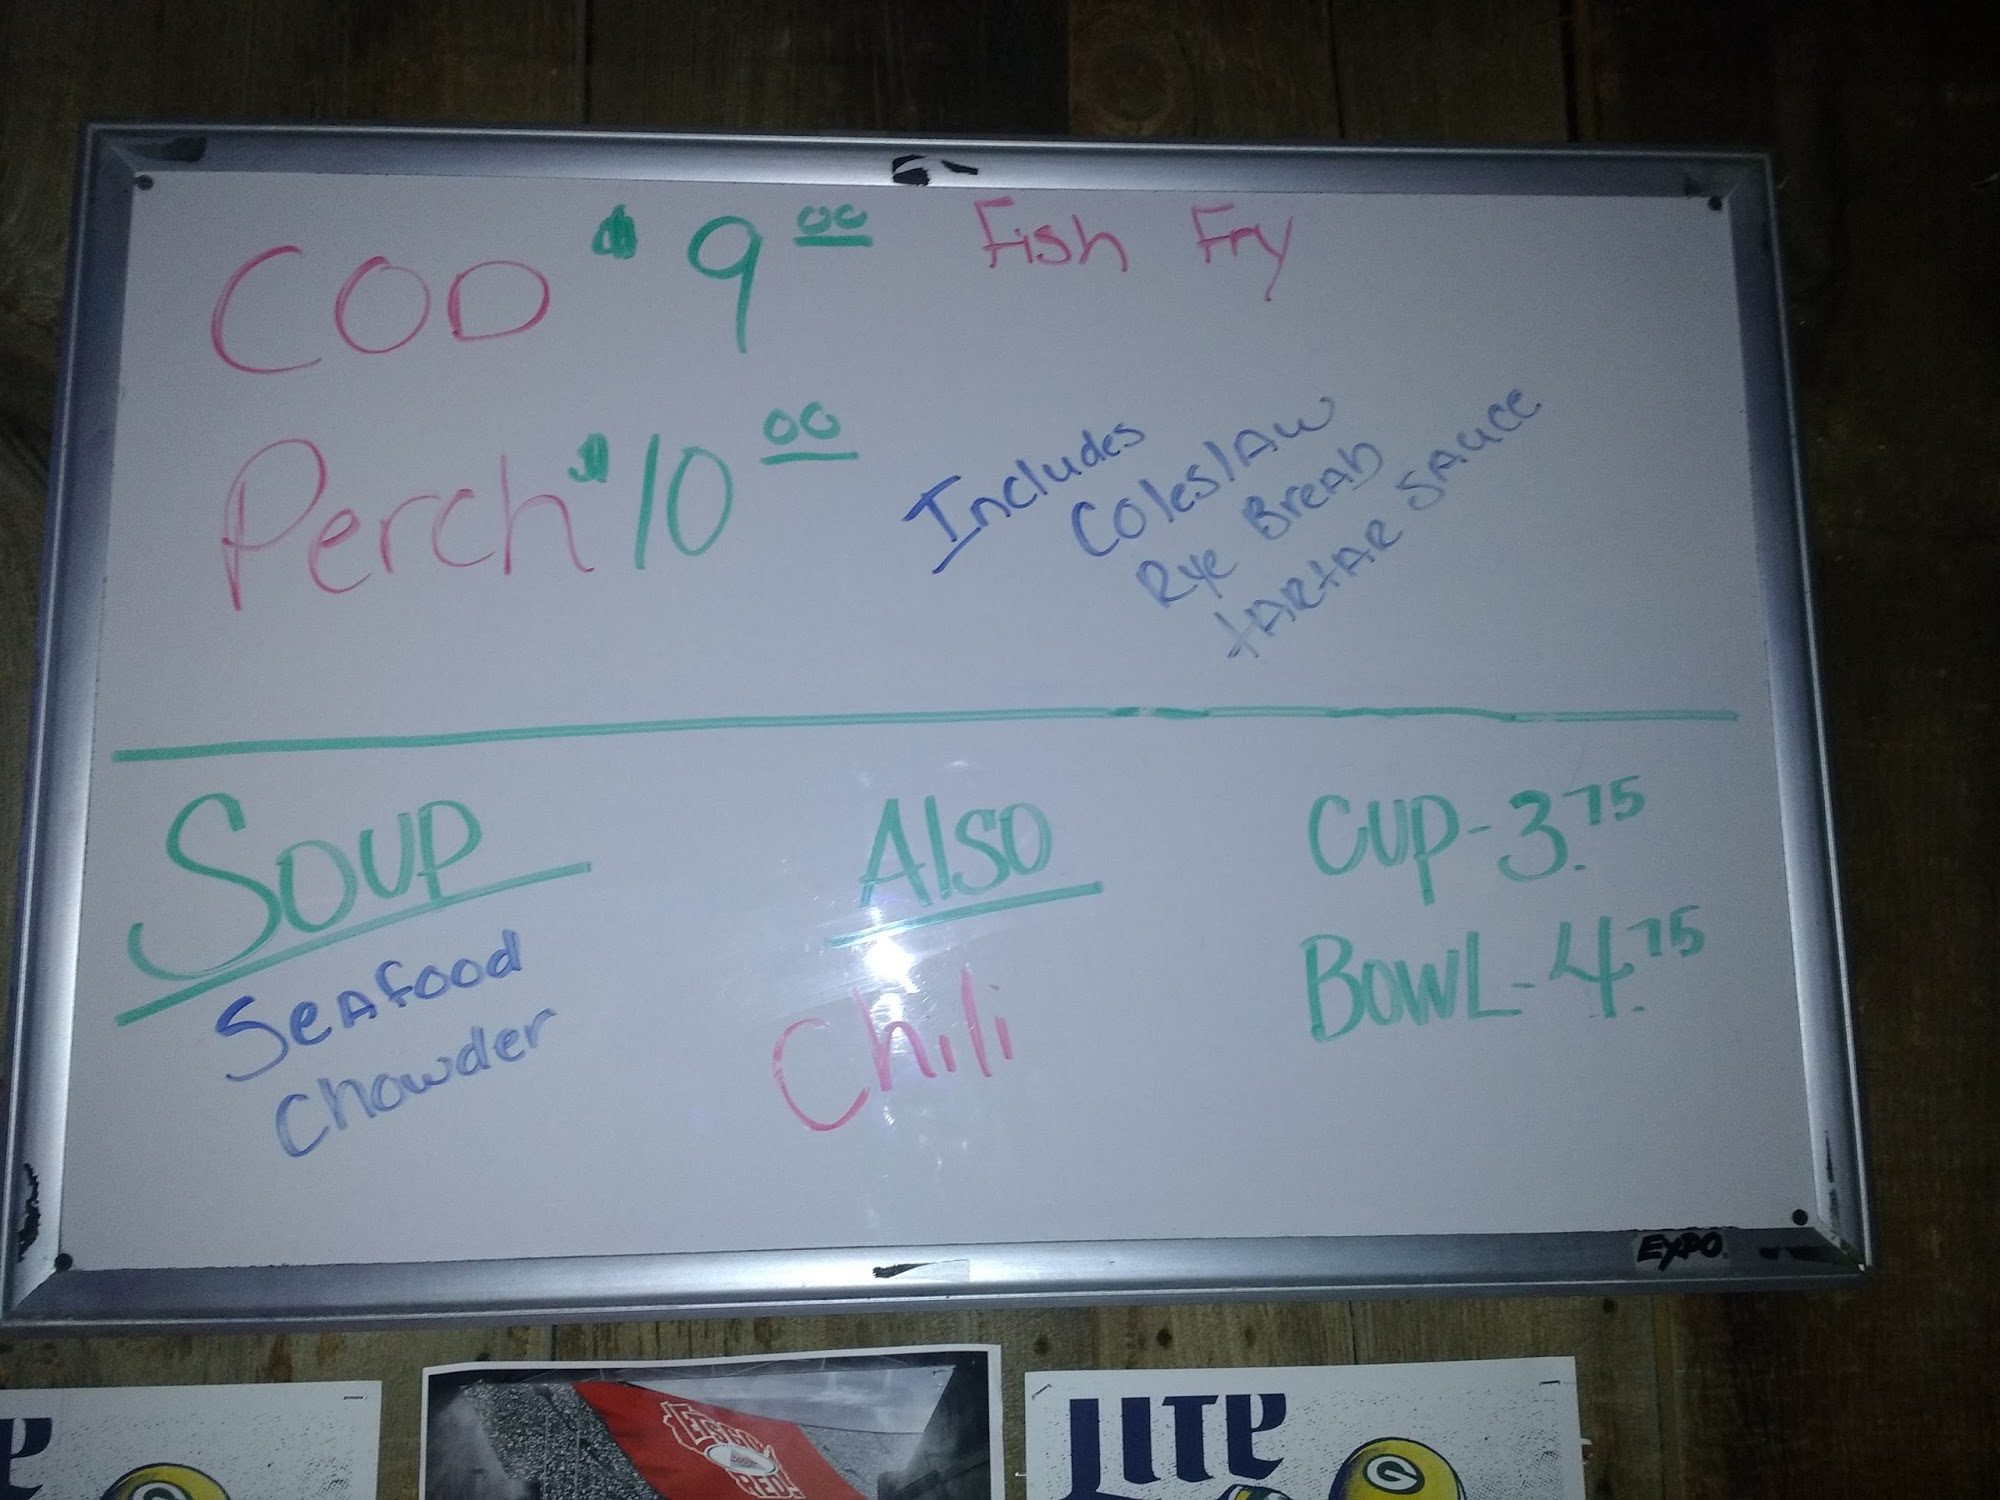 COD $9 00 Fish Fry
Perch $10 00
Includes
ColeslAw
Rye BreAD
tARtAR SAuce
Soup
SeAfood
Chowder
Also
Chili
Cup - 3.75
BOWL - 4.75
EXPO
LITE
G
LETS GO
RED!
G